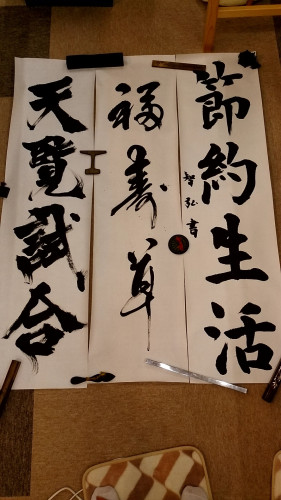 節約生活
智弘書
福寿草
天覧試合